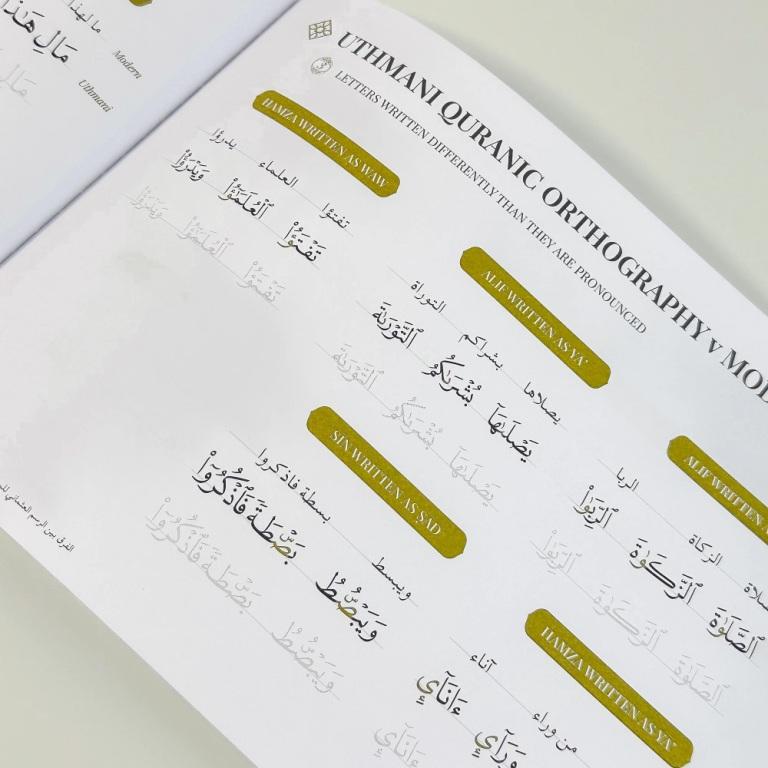 ما لهذا
Modern
مَالِ هَـٰذَا
Uthmani
مَالِ
UTHMANI QURANIC ORTHOGRAPHY v MOD
3
LETTERS WRITTEN DIFFERENTLY THAN THEY ARE PRONOUNCED
HAMZA WRITTEN AS WAW
تفتؤا العلماء يدرؤا
تَفْتَؤُا۟ ٱلْعُلَمَـٰٓؤُا۟ وَيَدْرَؤُا۟
تَفْتَؤُا۟ ٱلْعُلَمَـٰٓؤُا۟ وَيَدْرَؤُا۟
ALIF WRITTEN AS YA'
يصلاها بشراكم التوراة
يَصْلَىٰهَا بُشْرَىٰكُمُ ٱلتَّوْرَىٰةَ
يَصْلَىٰهَا بُشْرَىٰكُمُ ٱلتَّوْرَىٰةَ
ALIF WRITTEN A
الزكاة الربا
ٱلصَّلَوٰةَ ٱلزَّكَوٰةَ ٱلرِّبَوٰا۟
ٱلصَّلَوٰةَ ٱلزَّكَوٰةَ ٱلرِّبَوٰا۟
SIN WRITTEN AS ṢAD
ويبسط بسطة فاذكروا
وَيَبْصُۜطُ بَصْۜطَةً فَٱذْكُرُوٓا۟
وَيَبْصُۜطُ بَصْۜطَةً فَٱذْكُرُوٓا۟
HAMZA WRITTEN AS YA'
من وراء آناء
وَرَآئِ ءَانَآئِ
ءَانَآئِ
الفرق بين الرسم العثماني